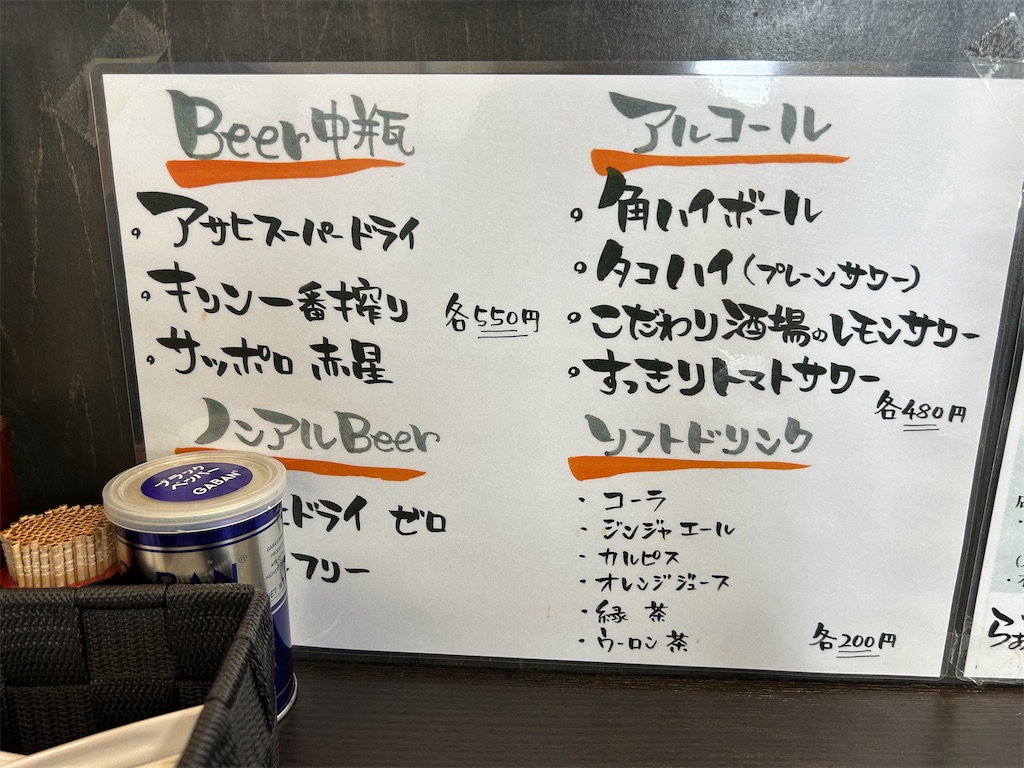 Beer中瓶
アサヒスーパードライ
キリン一番搾り
サッポロ 赤星
各550円
ノンアルBeer
ドライ ゼロ
フリー
アルコール
角ハイボール
タコハイ(プレーンサワー)
こだわり酒場のレモンサワー
すっきりトマトサワー
各480円
ソフトドリンク
・コーラ
・ジンジャエール
・カルピス
・オレンジジュース
・緑茶
・ウーロン茶
各200円
ブラック
ペッパー
GABAN